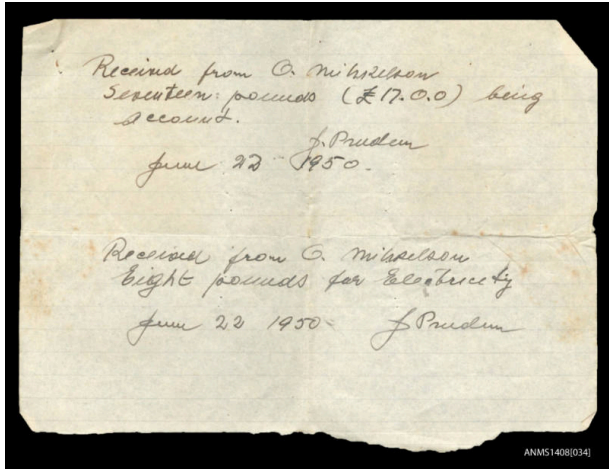 Received from O. Mihkelson
Seventeen pounds (£17.0.0) being
account.
J. Pruden
June 22 1950.
Received from O. Mihkelson
Eight pounds for Electricity
June 22 1950 J Pruden
ANMS1408[034]